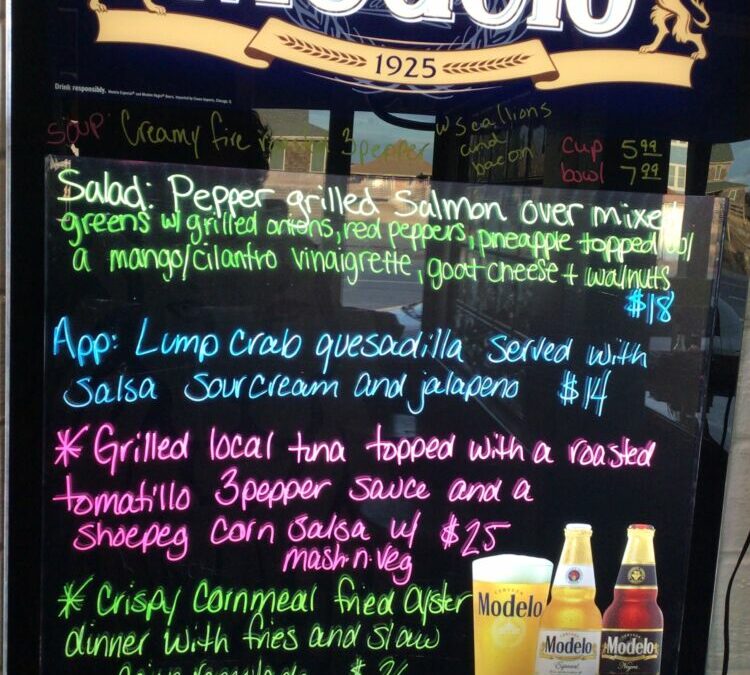 Modelo
1925
Drink responsibly.
SOUP Creamy fire roasted 3 pepper w scallions and bacon
cup 5 99
bowl 7 99
Salad: Pepper grilled Salmon over mixed
greens w/ grilled onions, red peppers, pineapple topped w/
a mango/cilantro vinaigrette, goat cheese + walnuts
$18
App: Lump Crab quesadilla served with
Salsa Sour cream and jalapeno $14
* Grilled local tuna topped with a roasted
tomatillo 3pepper sauce and a
Shoepeg Corn Salsa w/ $25
mash-n-veg
* Crispy Cornmeal fried Oyster
dinner with fries and slaw
Modelo
Modelo
Especial
Modelo
Negra